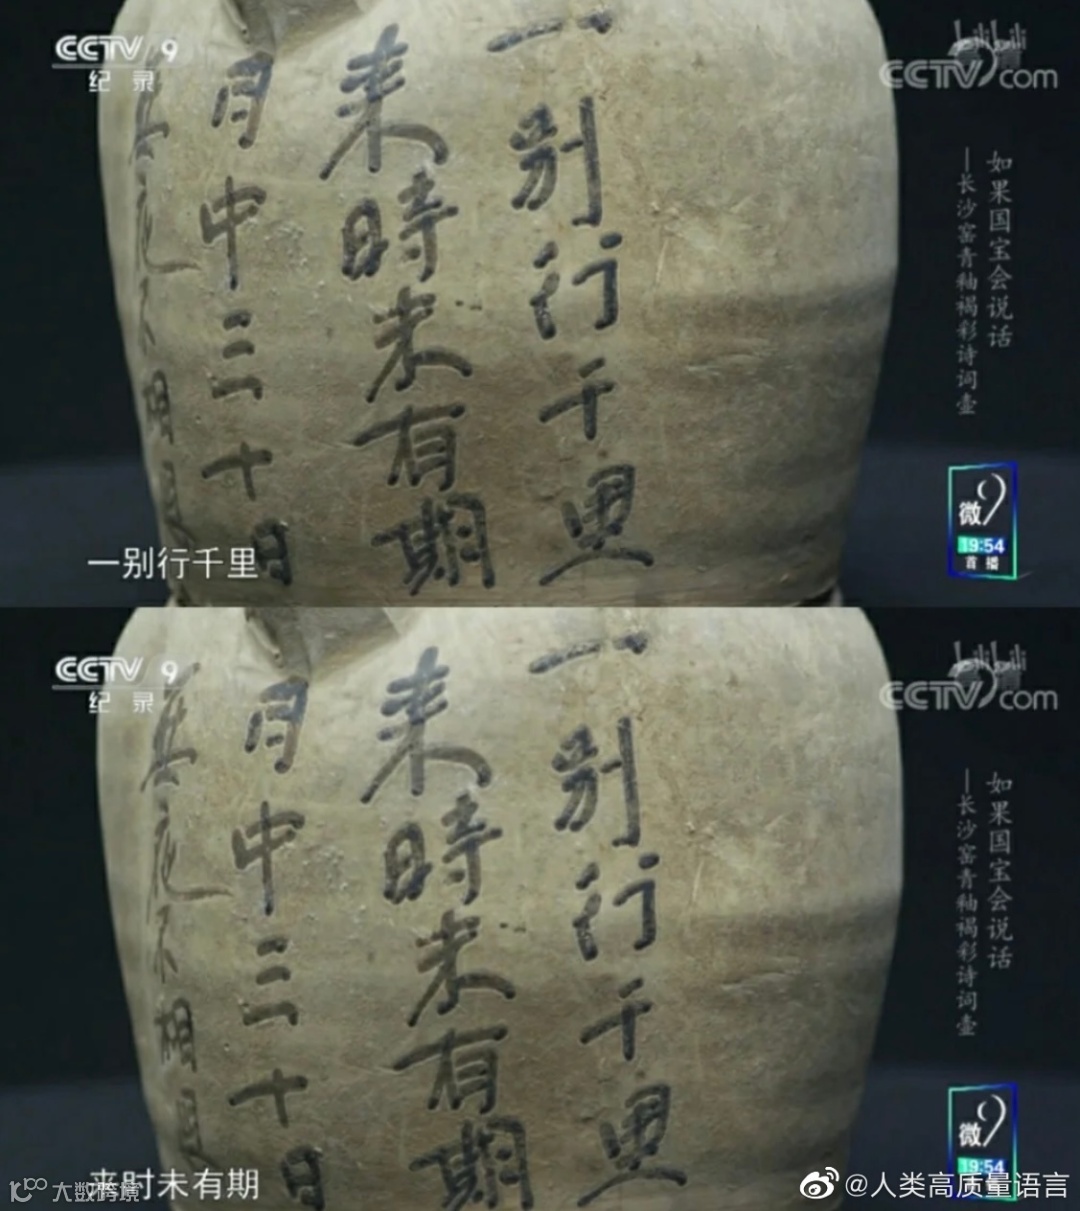 CCTV 9
纪录
bilibili
CCTV.com
一别行千里
来時未有期
月中三十日
無夜不相思
如果国宝会说话
—长沙窑青釉褐彩诗词壶
微9
19:54
首播
一别行千里
CCTV 9
纪录
bilibili
CCTV.com
一别行千里
来時未有期
月中三十日
無夜不相思
如果国宝会说话
—长沙窑青釉褐彩诗词壶
微9
19:54
来时未有期
大数跨境
@人类高质量语言